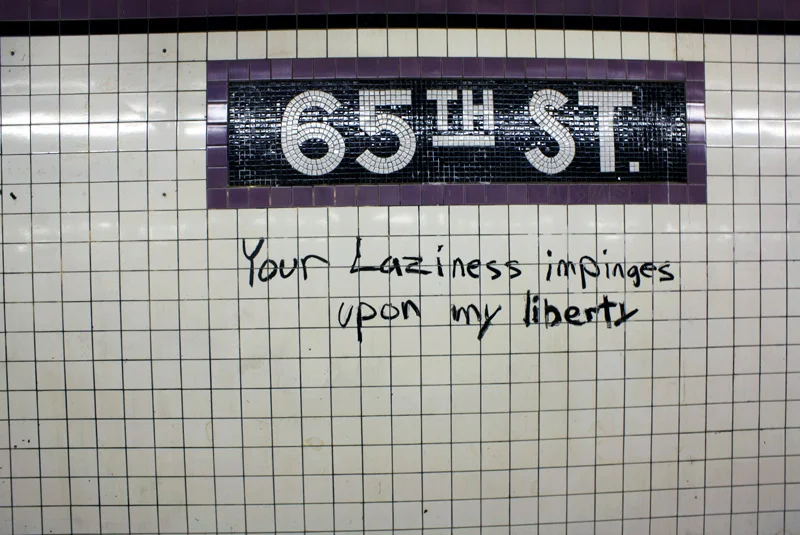 65TH ST.
Your Laziness impinges
upon my liberty